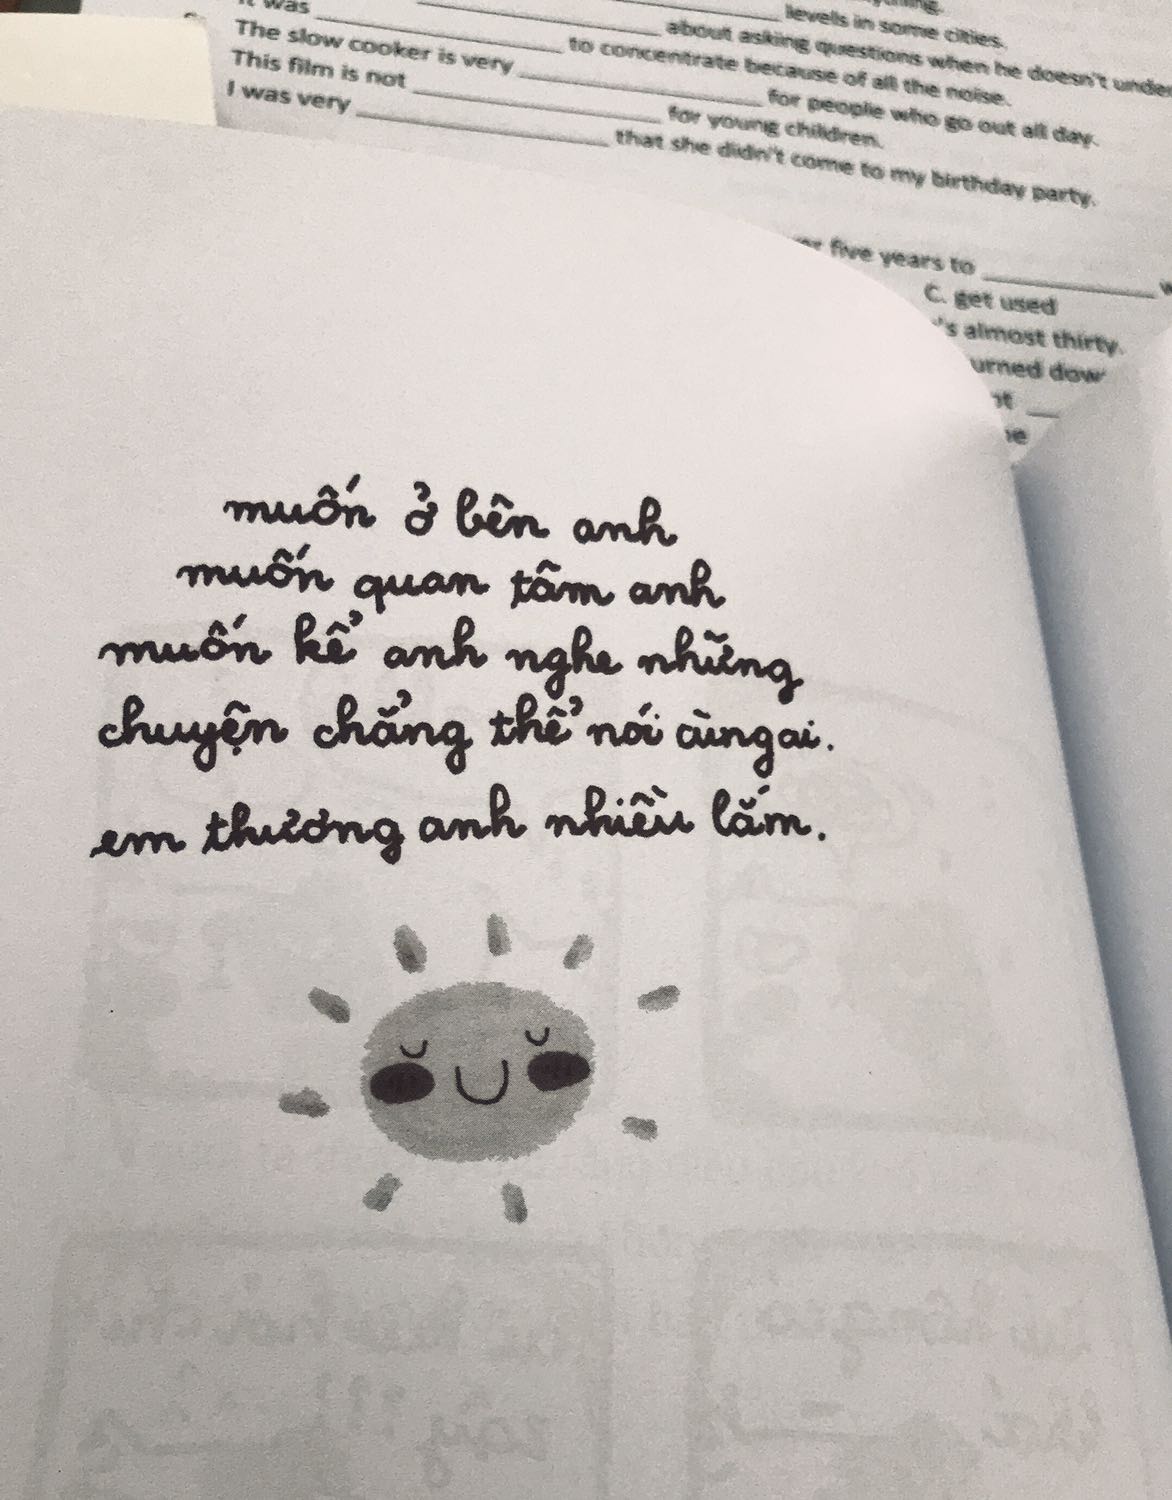 It was
levels in some cities.
about asking questions when he doesn't
The slow cooker is very
to concentrate because of all the noise.
This film is not
for people who go out all day.
I was very
for young children.
that she didn't come to my birthday party.
five years to
C. get used
's almost thirty.
muốn ở bên anh
muốn quan tâm anh
muốn kể anh nghe những
chuyện chẳng thể nói cùng ai.
em thương anh nhiều lắm.